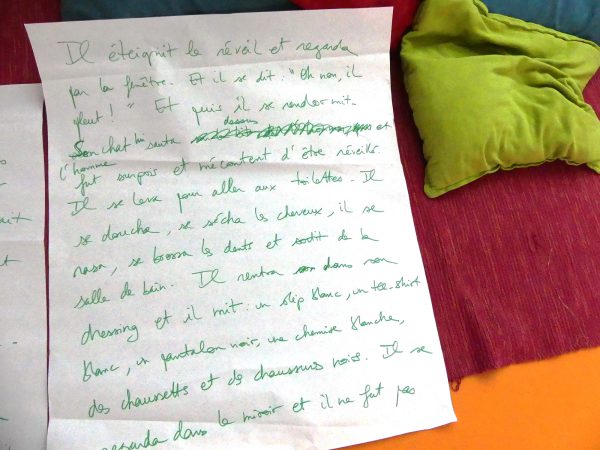 Il éteignit le réveil et regarda
par la fenêtre. Et il se dit : "Oh non, il
pleut ! " Et puis il se rendormit.
dessus
Son chat lui sauta et
l'homme
fut surpris et mécontent d'être réveillé.
Il se leva pour aller aux toilettes. Il
se doucha, se sécha les cheveux, il se
rasa, se brossa les dents et sortit de la
salle de bain. Il rentra dans son
dressing et il mit : un slip blanc, un tee-shirt
blanc, un pantalon noir, une chemise blanche,
des chaussettes et des chaussures noires. Il se
regarda dans le miroir et il ne fut pas